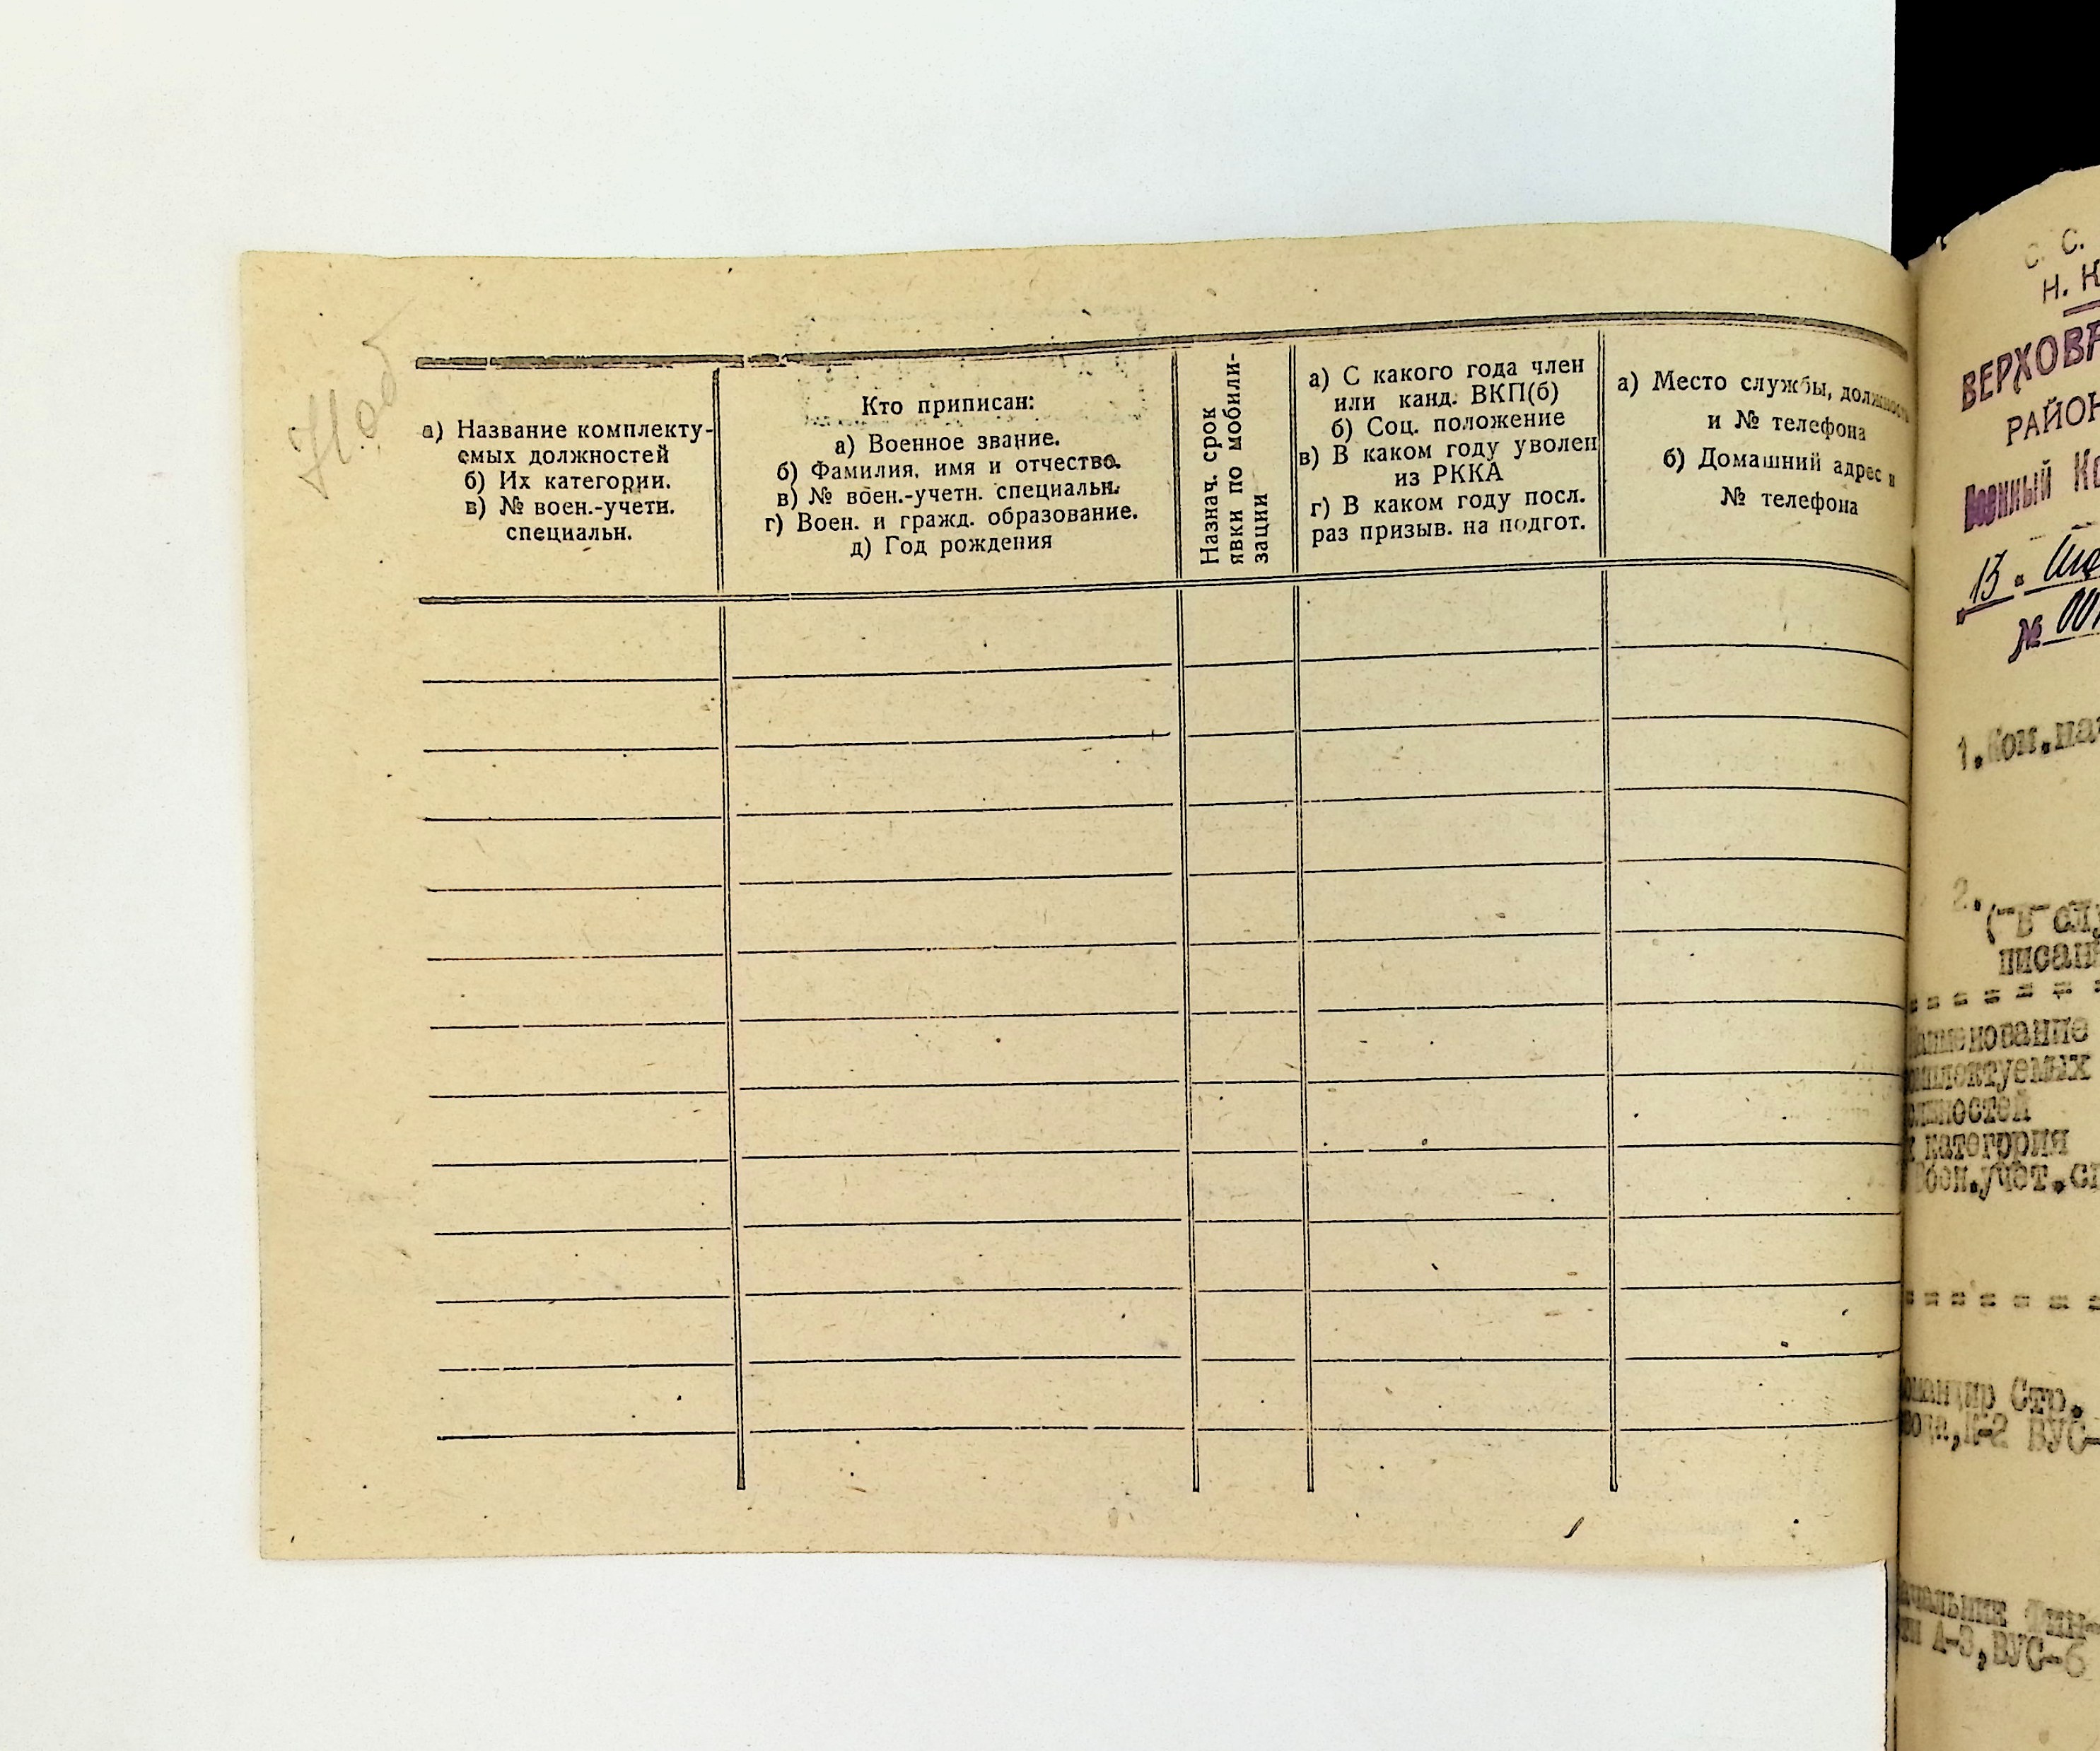 Ноб
а) Название комплекту-
емых должностей
б) Их категории.
в) № воен.-учетн.
специальн.
Кто приписан:
а) Военное звание.
б) Фамилия, имя и отчество.
в) № воен.-учетн. специальн.
г) Воен. и гражд. образование.
д) Год рождения
Назнач. срок
явки по мобили-
зации
а) С какого года член
или канд. ВКП(б)
б) Соц. положение
в) В каком году уволен
из РККА
г) В каком году посл.
раз призыв. на подгот.
а) Место службы, должность
и № телефона
б) Домашний адрес и
№ телефона
С. С.
Н. К
ВЕРХОВ
РАЙОН
Военный Ко
13.
№ 00
1. Ком.нач
2.
("в сл
писан
Наименование
комплектуемых
должностей
категория
Воен.учет.сп
Командир Стр.
взвода, К-2 ВУС-
Начальник Фин-
А-3, ВУС-6